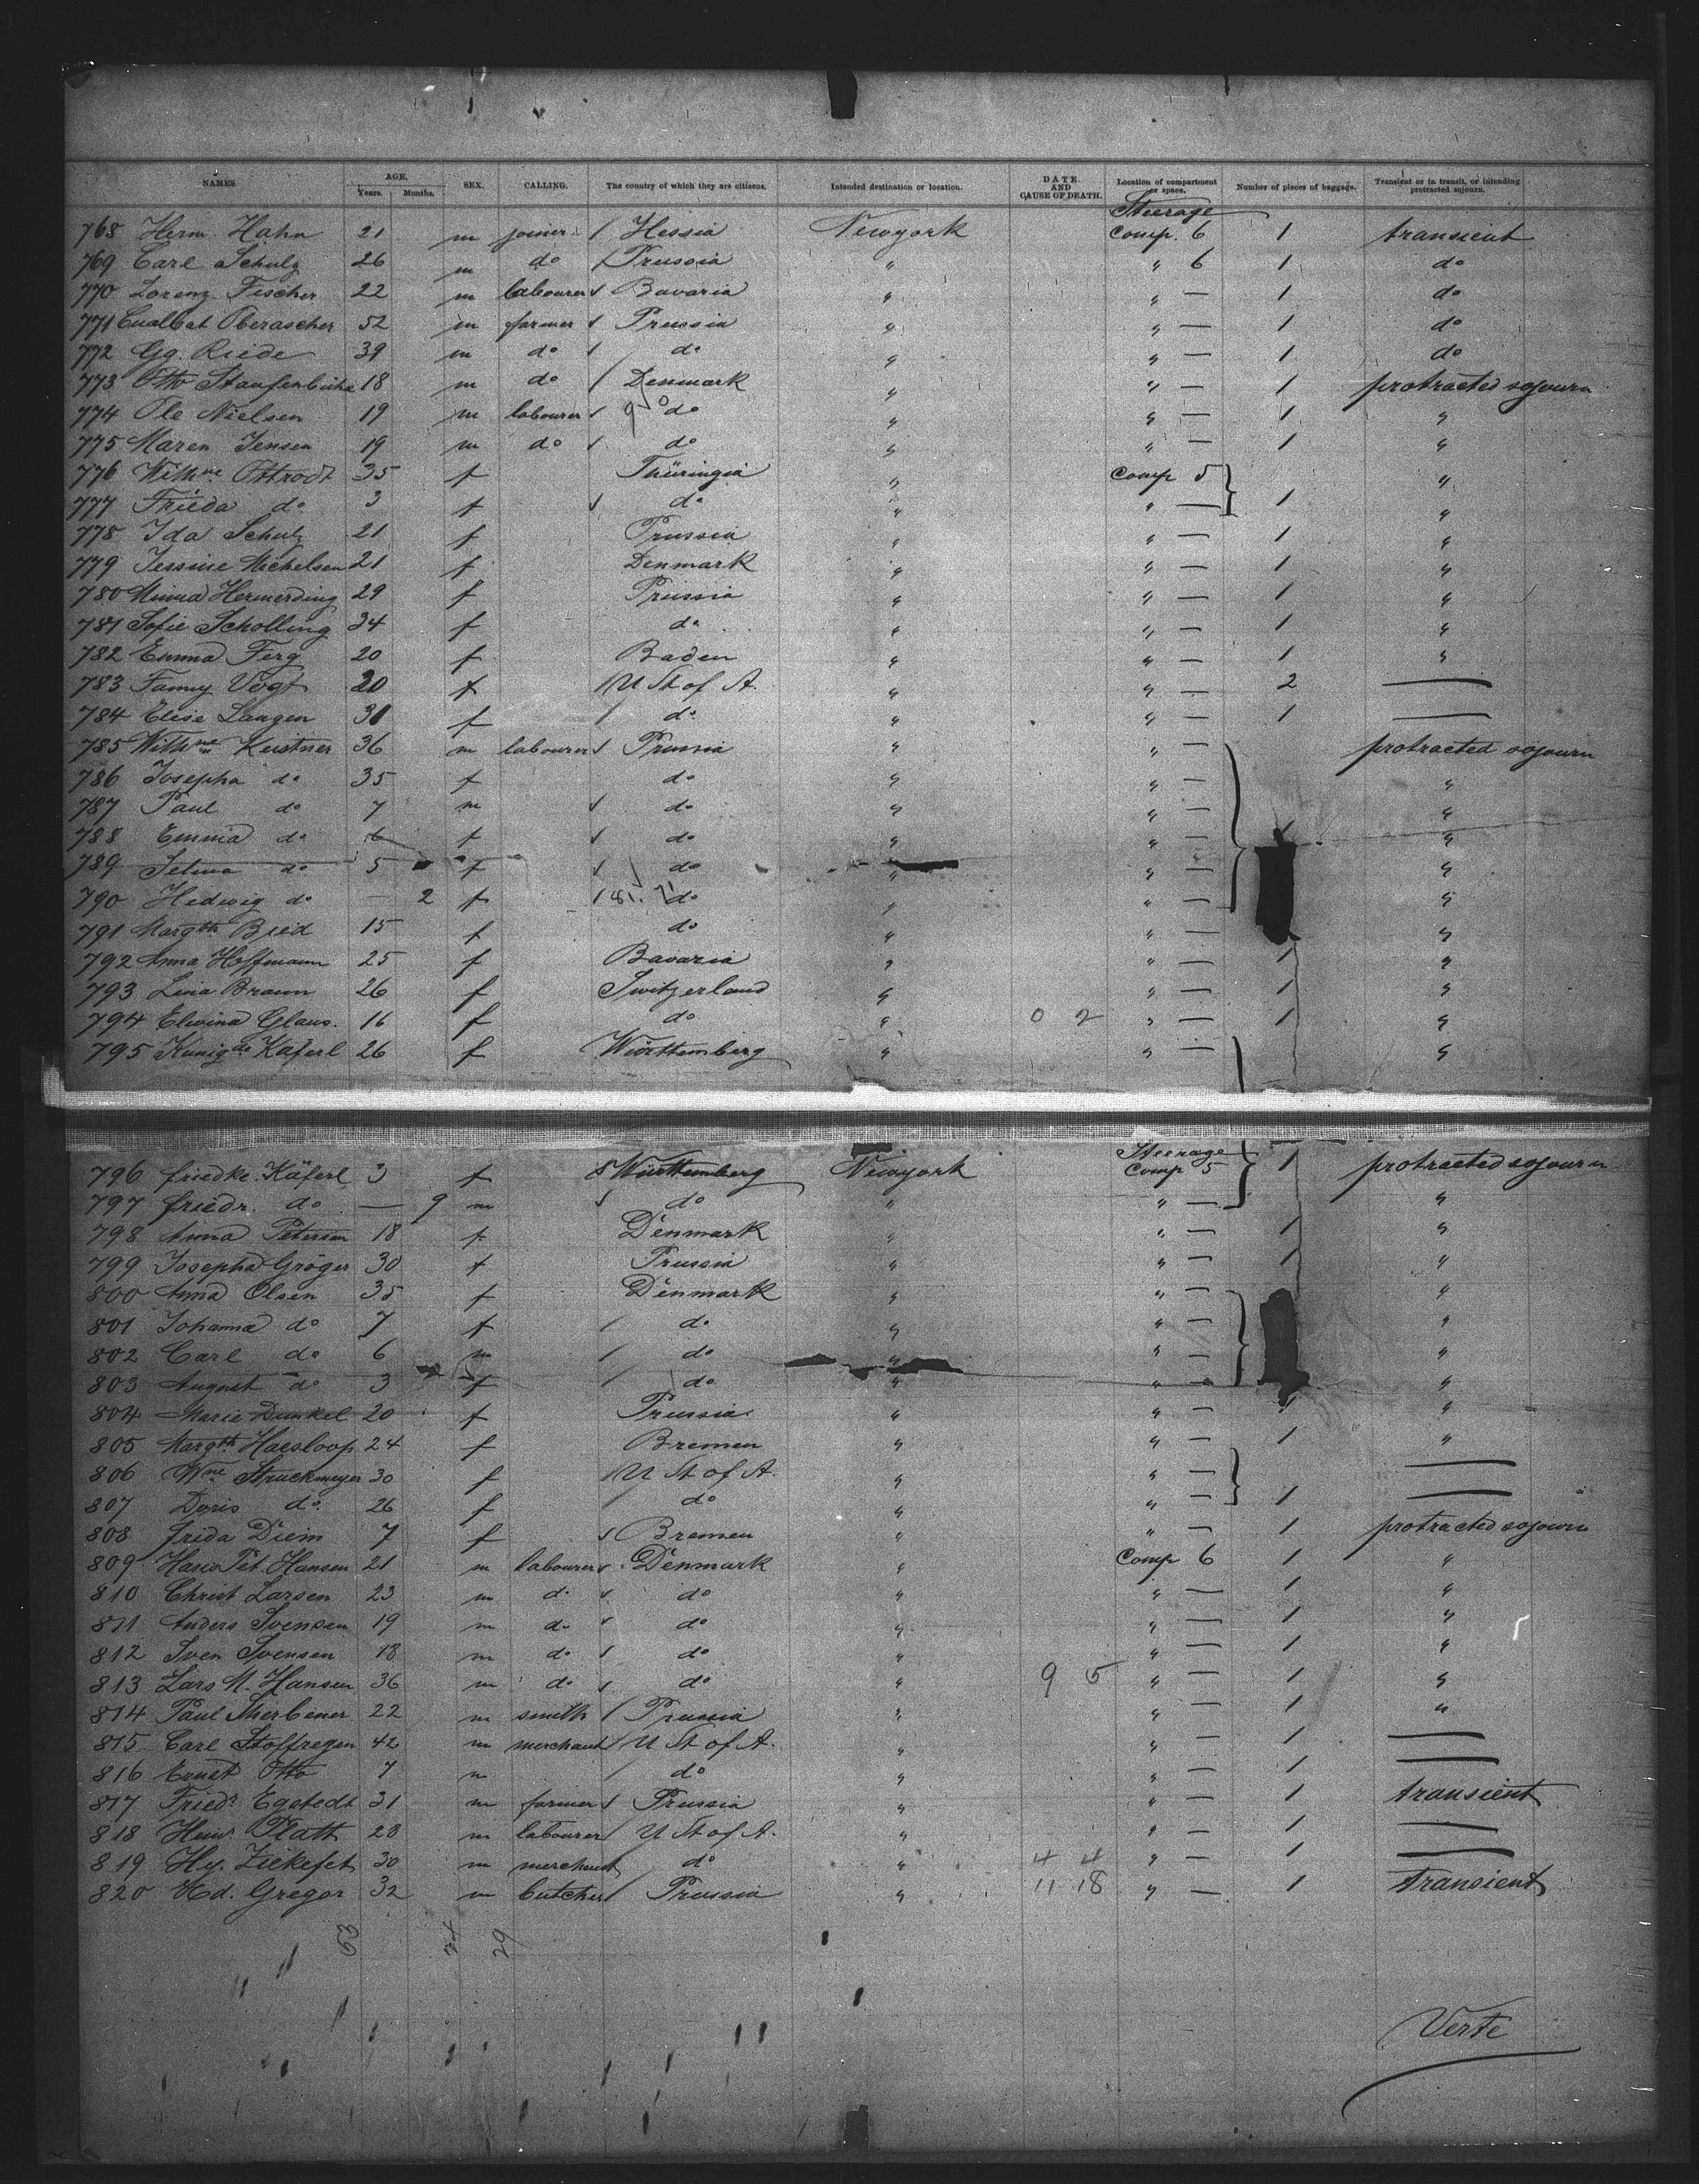 NAMES AGE. Years. Months. SEX. CALLING. The country of which they are citizens. Intended destination or location. DATE AND CAUSE OF DEATH. Location of compartment or space. Number of pieces of baggage. Transient or in transit, or intending protracted sojourn.
Steerage
768 Herm. Hahn 21 m joiner Hessia Newyork Comp. 6 1 transient
769 Carl Schulz 26 m do Prussia " " 6 1 do
770 Lorenz Fischer 22 m labourer Bavaria " " — 1 do
771 Oberascher 52 m farmer Prussia " " — 1 do
772 Gg. Riede 39 m do do " " — 1 do
773 Otto 18 m do Denmark " " — 1 protracted sojourn
774 Ole Nielsen 19 m labourer do " " — 1 "
775 Maren Jensen 19 m do do " " — 1 "
776 Wilhne Ottrodt 35 f Thüringia " Comp 5 "
777 Frieda do 3 f do " " — 1 "
778 Ida Schulz 21 f Prussia " " — 1 "
779 Jessine Michelsen 21 f Denmark " " — 1 "
780 Minna Hermerding 29 f Prussia " " — 1 "
781 Sofie Scholling 24 f do " " — 1 "
782 Emma Ferg 20 f Baden " " — 1 "
783 Fanny Vogt 20 f U St of A. " " — 2 —
784 Elise Langen 31 f do " " — 1 —
785 Wilhne Keistner 36 m labourer Prussia " " — protracted sojourn
786 Josepha do 35 f do " " — "
787 Paul do 7 m do " " — "
788 Emma do 6 f do " " — "
789 Selma do 5 f do " " — "
790 Hedwig do — 2 f do " " — "
791 Margth Bried 15 f do " " — "
792 Anna Hoffmann 25 f Bavaria " " — 1 "
793 Lina Braun 26 f Switzerland " " — 1 "
794 Elwina Glaus. 16 f do " 0 2 " — 1 "
795 Kunigde Käferl 26 f Württemberg " " — "
Steerage
796 Friedke. Käferl 3 f Württemberg Newyork Comp 5 1 protracted sojourn
797 Friedr. do — 9 m do " " — "
798 Anna Petersen 18 f Denmark " " — 1 "
799 Josepha Gröger 30 f Prussia " " — 1 "
800 Anna Olsen 35 f Denmark " " — "
801 Johanna do 7 f do " " — "
802 Carl do 6 m do " " — "
803 August do 3 f do " " — "
804 Marie Dunkel 20 f Prussia " " — 1 "
805 Margth Haesloop 24 f Bremen " " — 1 "
806 Wne Struckmeyer 30 f U St of A. " " — —
807 Doris do 26 f do " " — 1 —
808 Frida Diem 7 f Bremen " " — 1 protracted sojourn
809 Hans Pet. Hansen 21 m labourer Denmark " Comp 6 1 "
810 Christ Larsen 23 m do do " " — 1 "
811 Anders Svensen 19 m do do " " — 1 "
812 Sven Svensen 18 m do do " " — 1 "
813 Lars M. Hansen 36 m do do " 9 5 " — 1 "
814 Paul Sherbener 22 m smith Prussia " " — 1 "
815 Carl Stoffregen 42 m merchant U St of A. " " — 1 —
816 Ernst Otto 7 m do " " — 1 —
817 Friedr Egstedt 31 m farmer Prussia " " — 1 transient
818 Heinr. Platt 28 m labourer U St of A. " " — 1 —
819 Hy. Ziekefet 30 m merchant do " 4 4 " — 1 —
820 Hd. Gregor 32 m butcher Prussia " 11 18 " — 1 transient
53 24 29
Verte